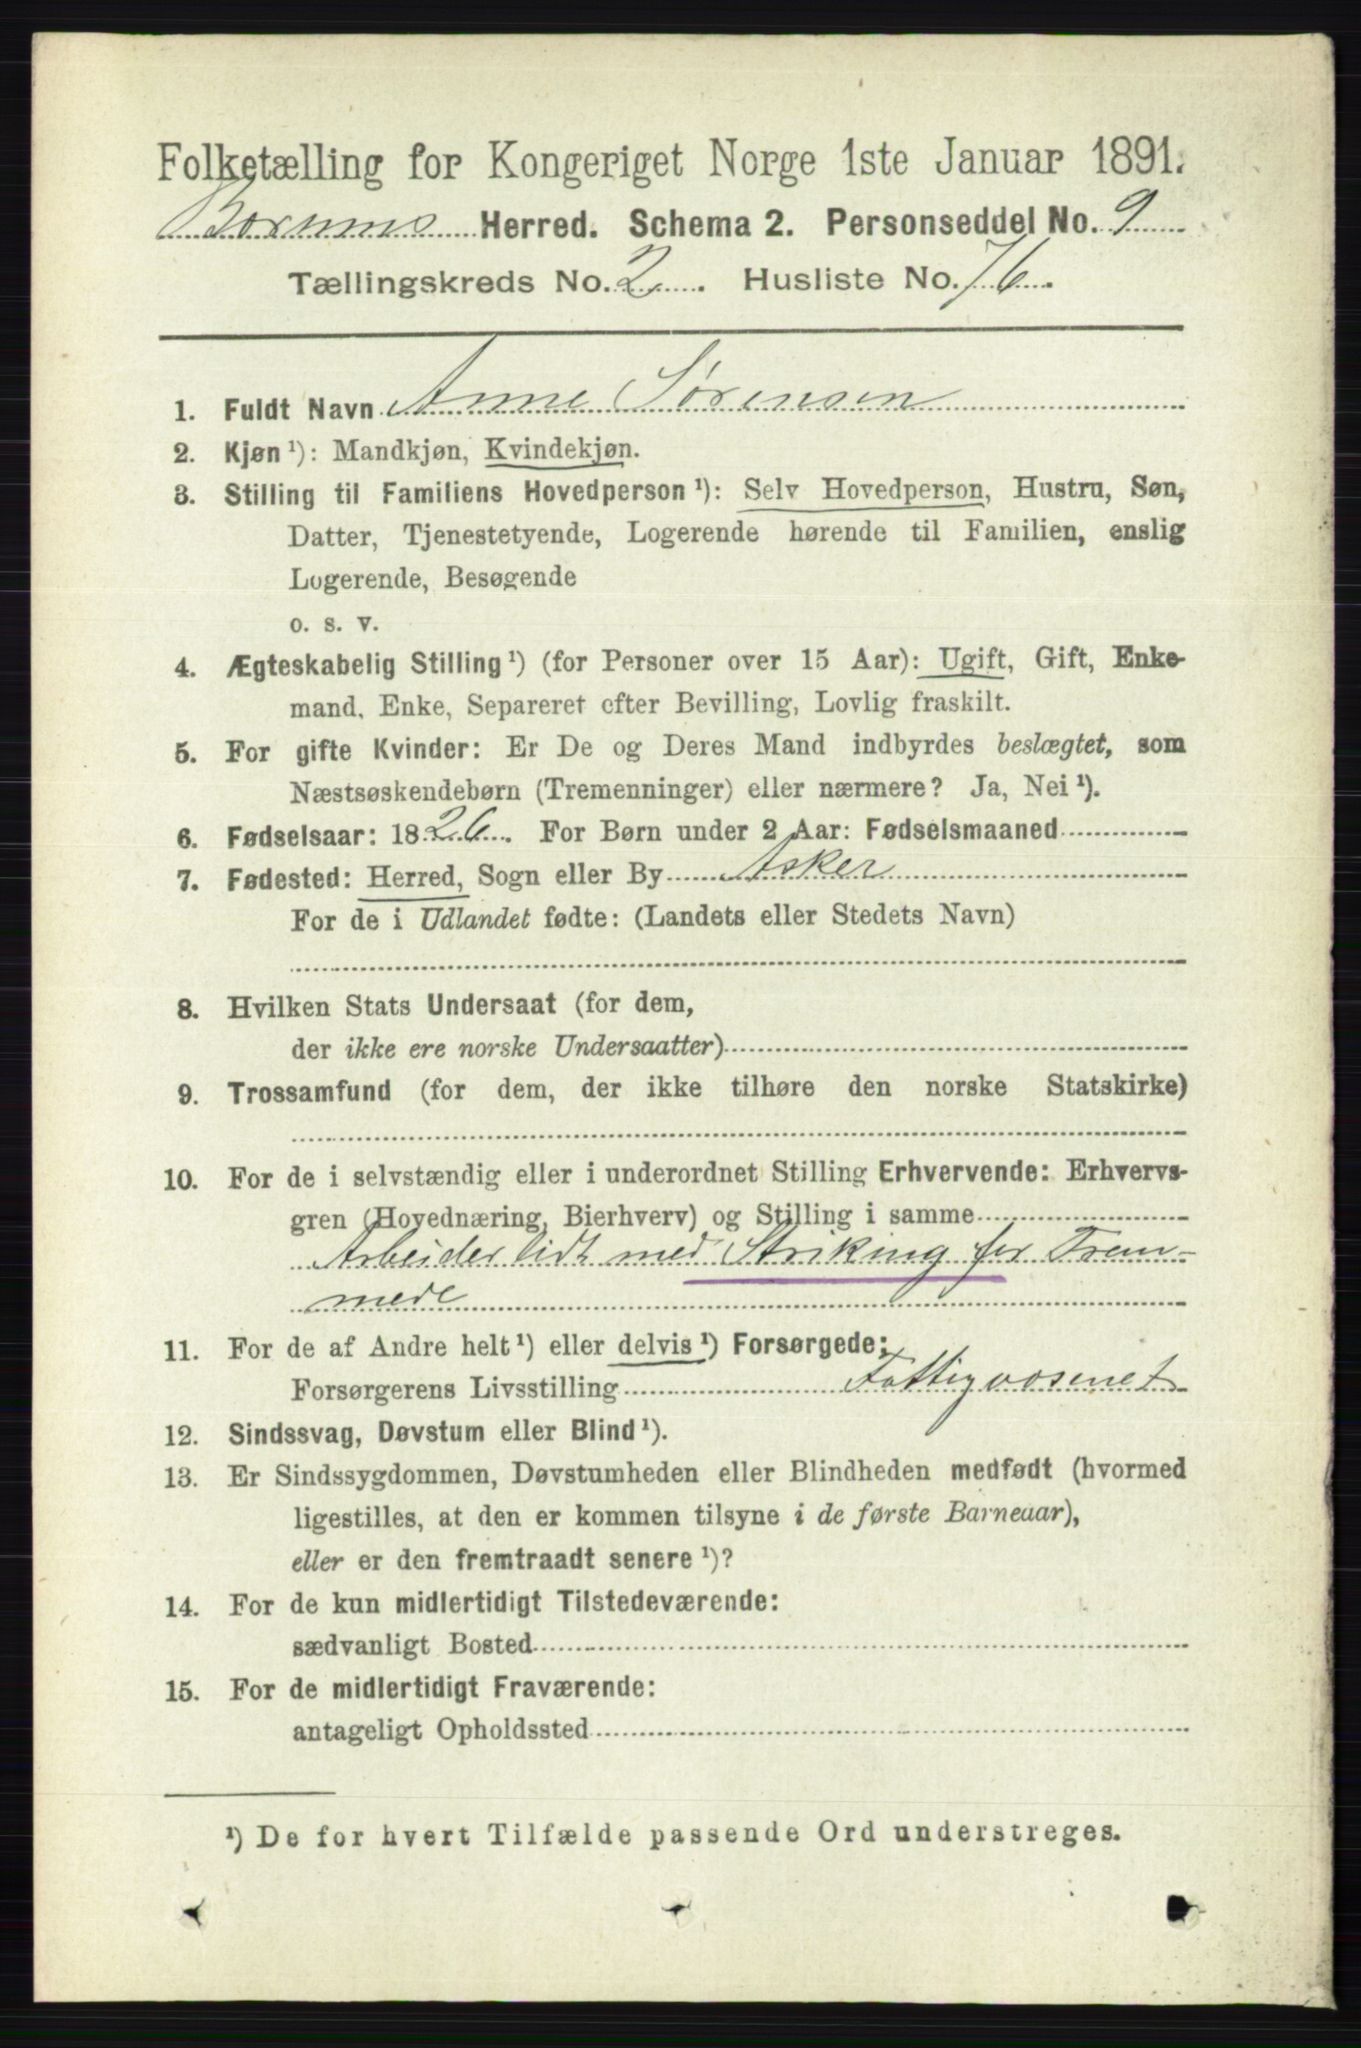 Folketælling for Kongeriget Norge 1ste Januar 1891.
Bærums Herred. Schema 2. Personseddel No. 9
Tællingskreds No. 2. Husliste No. 76.
1. Fuldt Navn Anne Sørensen
2. Kjøn ¹): Mandkjøn, Kvindekjøn.
3. Stilling til Familiens Hovedperson ¹): Selv Hovedperson, Hustru, Søn,
Datter, Tjenestetyende, Logerende hørende til Familien, enslig
Logerende, Besøgende
o. s. v.
4. Ægteskabelig Stilling ¹) (for Personer over 15 Aar): Ugift, Gift, Enke-
mand, Enke, Separeret efter Bevilling, Lovlig fraskilt.
5. For gifte Kvinder: Er De og Deres Mand indbyrdes beslægtet, som
Næstsøskendebørn (Tremenninger) eller nærmere? Ja, Nei ¹).
6. Fødselsaar: 1826. For Børn under 2 Aar: Fødselsmaaned
7. Fødested: Herred, Sogn eller By Asker
For de i Udlandet fødte: (Landets eller Stedets Navn)
8. Hvilken Stats Undersaat (for dem,
der ikke ere norske Undersaatter)
9. Trossamfund (for dem, der ikke tilhøre den norske Statskirke)
10. For de i selvstændig eller i underordnet Stilling Erhvervende: Erhvervs-
gren (Hovednæring, Bierhverv) og Stilling i samme
Arbeider lidt med Strikning for Frem-
mede
11. For de af Andre helt ¹) eller delvis ¹) Forsørgede:
Forsørgerens Livsstilling Fattigvæsenet
12. Sindssvag, Døvstum eller Blind ¹).
13. Er Sindssygdommen, Døvstumheden eller Blindheden medfødt (hvormed
ligestilles, at den er kommen tilsyne i de første Barneaar),
eller er den fremtraadt senere ¹)?
14. For de kun midlertidigt Tilstedeværende:
sædvanligt Bosted
15. For de midlertidigt Fraværende:
antageligt Opholdssted
¹) De for hvert Tilfælde passende Ord understreges.